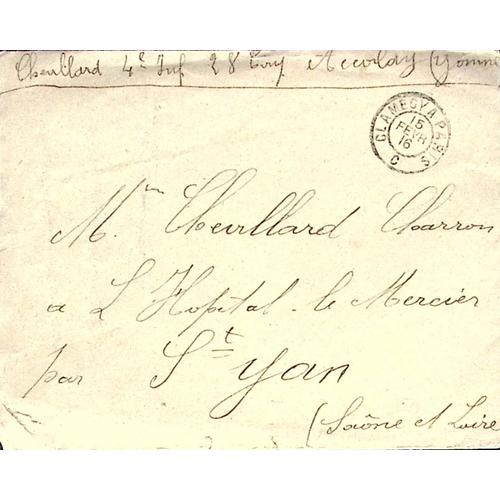 Chevillard 4e Inf 28 Cie Accolay (Yonne
CLAMECY A PARIS
15
FEVR
16
C
Mr. Chevillard Charron
a L'Hopital-le Mercier
par St Yan
(Saône et Loire